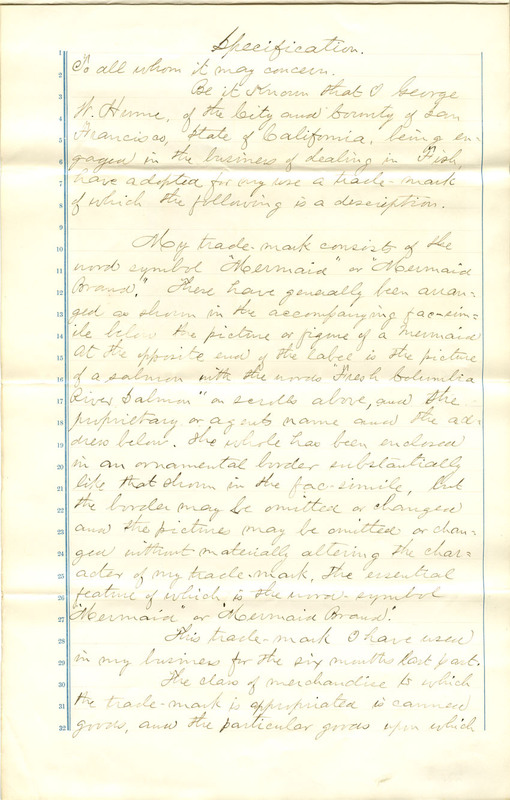 Specification.
1
To all whom it may concern.
2
Be it Known that I George
3
W. Hume, of the City and County of San
4
Francisco, State of California, being en-
5
gaged in the business of dealing in Fish,
6
have adopted for my use a trade-mark
7
of which the following is a description.
8
9
My trade-mark consists of the
10
word symbol "Mermaid" or "Mermaid
11
Brand." These have generally been arran-
12
ged as shown in the accompanying fac-sim-
13
ile below the picture or figure of a mermaid
14
At the opposite end of the label is the picture
15
of a salmon with the words "Fresh Columbia
16
River Salmon" on scrolls above, and the
17
proprietary or agents name and the ad-
18
dress below. The whole has been enclosed
19
in an ornamental border substantially
20
like that shown in the fac-simile, but
21
the border may be omitted or changed
22
and the pictures may be omitted or chan-
23
ged without materially altering the char-
24
acter of my trade-mark, the essential
25
feature of which is the word-symbol
26
"Mermaid" or "Mermaid Brand."
27
This trade-mark I have used
28
in my business for the six months last past.
29
The class of merchandise to which
30
the trade-mark is appropriated is canned
31
goods, and the particular goods upon which
32